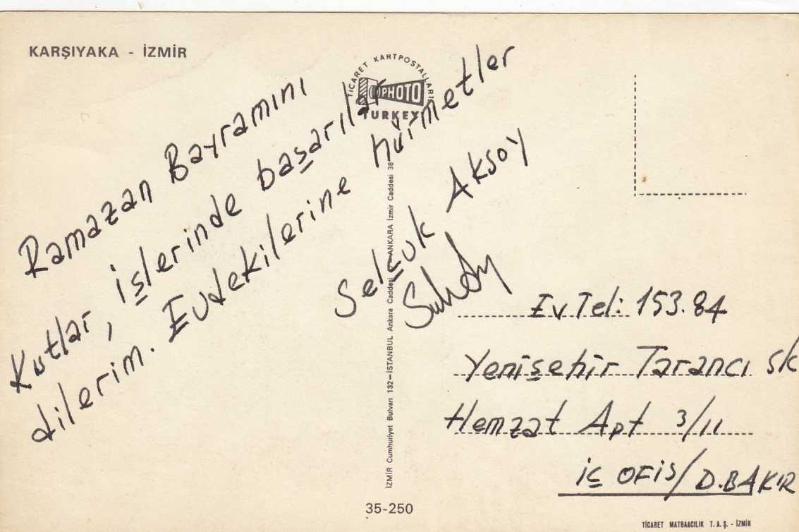 KARŞIYAKA - İZMİR
TİCARET KARTPOSTALLARI
PHOTO
TURKEY
Ramazan Bayramını
Kutlar, işlerinde başarılar
dilerim. Evdekilerine hürmetler
Selçuk Aksoy
Ev Tel: 153.84
Yenişehir Tarancı sk
Hemzat Apt 3/11
iç OFİS/D.BAKIR
İZMİR Cumhuriyet Bulvarı 132-İSTANBUL Ankara Caddesi ANKARA İzmir Caddesi 36
35-250
TİCARET MATBAACILIK T.A.Ş. - İZMİR